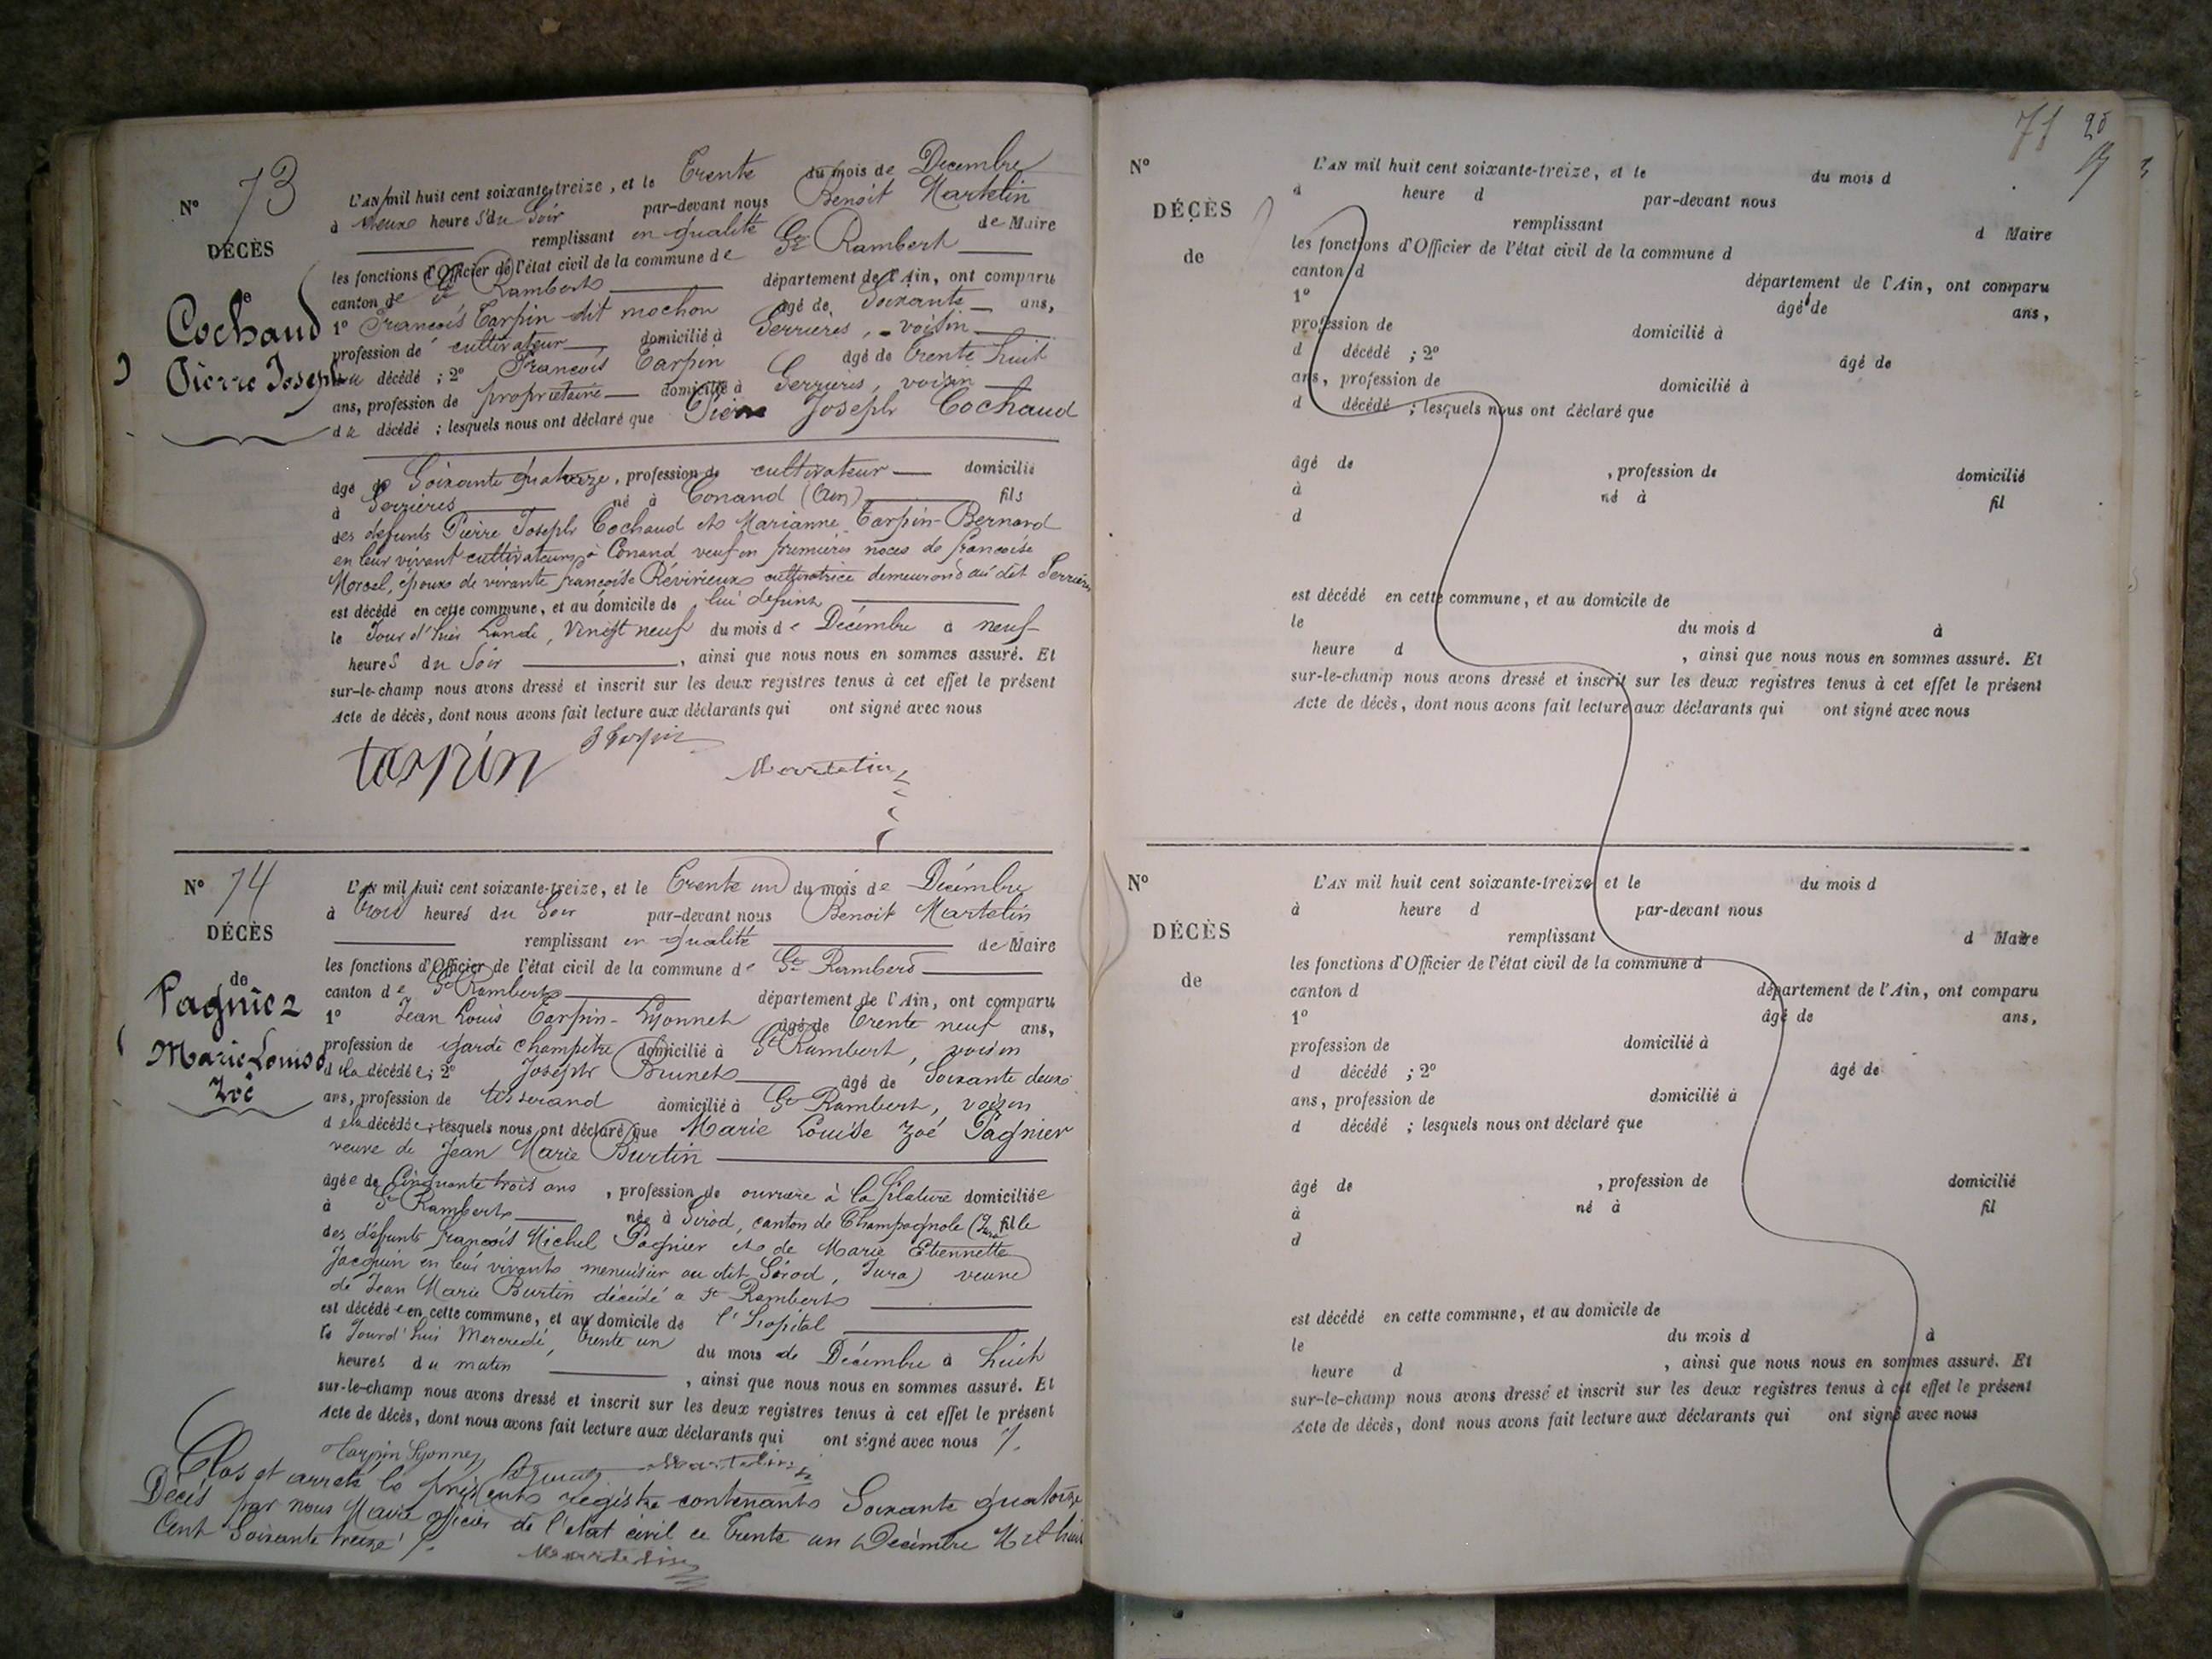 N° 73
DÉCÈS
de
Cochaud
Pierre Joseph
L'AN mil huit cent soixante-treize, et le Trente du mois de Decembre
à heures du Soir par-devant nous Benoit Martelin
remplissant en qualité de Maire
les fonctions d'Officier de l'état civil de la commune de St Rambert
canton de St Rambert département de l'Ain, ont comparu
1° François Tarpin dit mochon âgé de Soixante ans,
profession de cultivateur domicilié à Serrières, voisin
du décédé ; 2° François Tarpin âgé de Trente huit
ans, profession de propriétaire domicilié à Serrières, voisin
du décédé ; lesquels nous ont déclaré que Pierre Joseph Cochaud
âgé de Soixante quatorze, profession de cultivateur domicilié
à Serrières né à Conand (Ain) fils
des defunts Pierre Joseph Cochaud et Marianne Tarpin-Bernard
en leur vivant cultivateurs à Conand veuf en premières noces de françoise
Morcel, époux de vivante françoise Révirieux cultivatrice demeurant au dit Serrières
est décédé en cette commune, et au domicile de lui défunt
le Jour d'hier Lundi, Vingt neuf du mois de Décembre à neuf
heures du Soir, ainsi que nous nous en sommes assuré. Et
sur-le-champ nous avons dressé et inscrit sur les deux registres tenus à cet effet le présent
Acte de décès, dont nous avons fait lecture aux déclarants qui ont signé avec nous
tarpin Tarpin Martelin
N° 74
DÉCÈS
de
Pagniez
Marie Louise
Zoé
L'AN mil huit cent soixante-treize, et le Trente un du mois de Décembre
à trois heures du Soir par-devant nous Benoit Martelin
remplissant en qualité de Maire
les fonctions d'Officier de l'état civil de la commune de St Rambert
canton de St Rambert département de l'Ain, ont comparu
1° Jean Louis Tarpin-Lyonnet âgé de Trente neuf ans,
profession de garde champêtre domicilié à St Rambert, voisin
de la décédée ; 2° Joseph Brunet âgé de Soixante deux
ans, profession de tisserand domicilié à St Rambert, voisin
de la décédée ; lesquels nous ont déclaré que Marie Louise Zoé Pagnier
veuve de Jean Marie Burtin
âgée de Cinquante trois ans, profession de ouvrière à la filature domiciliée
à St Rambert née à Sirod, canton de Champagnole (Jura fille
des défunts françois Michel Pagnier et de Marie Etiennette
Jacquin en leur vivants menuisier au dit Sirod, Jura) veuve
de Jean Marie Burtin décédé a St Rambert
est décédée en cette commune, et au domicile de l'hopital
le Jourd'hui Mercredi, trente un du mois de Décembre à huit
heures du matin, ainsi que nous nous en sommes assuré. Et
sur-le-champ nous avons dressé et inscrit sur les deux registres tenus à cet effet le présent
Acte de décès, dont nous avons fait lecture aux déclarants qui ont signé avec nous /.
Tarpin Lyonnet Brunet Martelin
Clos et arreté le présent registre contenant Soixante quatorze
Décès par nous Maire officier de l'etat civil ce Trente un Décembre Mil huit
Cent Soixante treize /.
Martelin
71 20
N°
DÉCÈS
de
L'AN mil huit cent soixante-treize, et le du mois d
à heure d par-devant nous
remplissant d Maire
les fonctions d'Officier de l'état civil de la commune d
canton d département de l'Ain, ont comparu
1° âgé de ans,
profession de domicilié à
d décédé ; 2° âgé de
ans, profession de domicilié à
d décédé ; lesquels nous ont déclaré que
âgé de , profession de domicilié
à né à fil
d
est décédé en cette commune, et au domicile de
le du mois d à
heure d , ainsi que nous nous en sommes assuré. Et
sur-le-champ nous avons dressé et inscrit sur les deux registres tenus à cet effet le présent
Acte de décès, dont nous avons fait lecture aux déclarants qui ont signé avec nous
N°
DÉCÈS
de
L'AN mil huit cent soixante-treize et le du mois d
à heure d par-devant nous
remplissant d Maire
les fonctions d'Officier de l'état civil de la commune d
canton d département de l'Ain, ont comparu
1° âgé de ans,
profession de domicilié à
d décédé ; 2° âgé de
ans, profession de domicilié à
d décédé ; lesquels nous ont déclaré que
âgé de , profession de domicilié
à né à fil
d
est décédé en cette commune, et au domicile de
le du mois d à
heure d , ainsi que nous nous en sommes assuré. Et
sur-le-champ nous avons dressé et inscrit sur les deux registres tenus à cet effet le présent
Acte de décès, dont nous avons fait lecture aux déclarants qui ont signé avec nous